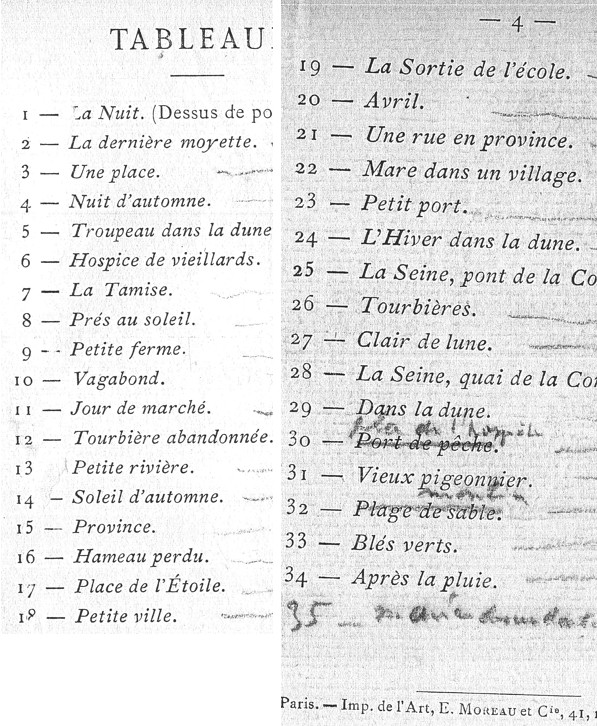 TABLEAU
1 — La Nuit. (Dessus de po
2 — La dernière moyette.
3 — Une place.
4 — Nuit d'automne.
5 — Troupeau dans la dune
6 — Hospice de vieillards.
7 — La Tamise.
8 — Prés au soleil.
9 -- Petite ferme.
10 — Vagabond.
11 — Jour de marché.
12 — Tourbière abandonnée.
13 Petite rivière.
14 — Soleil d'automne.
15 — Province.
16 — Hameau perdu.
17 — Place de l'Étoile.
18 — Petite ville.
— 4 —
19 — La Sortie de l'école.
20 — Avril.
21 — Une rue en province.
22 — Mare dans un village.
23 — Petit port.
24 — L'Hiver dans la dune.
25 — La Seine, pont de la Co
26 — Tourbières.
27 — Clair de lune.
28 — La Seine, quai de la Co
29 — Dans la dune.
30 — Port de pêche.
31 — Vieux pigeonnier.
moulin
32 — Plage de sable.
33 — Blés verts.
34 — Après la pluie.
35 —
Paris. — Imp. de l'Art, E. MOREAU et Cie, 41,